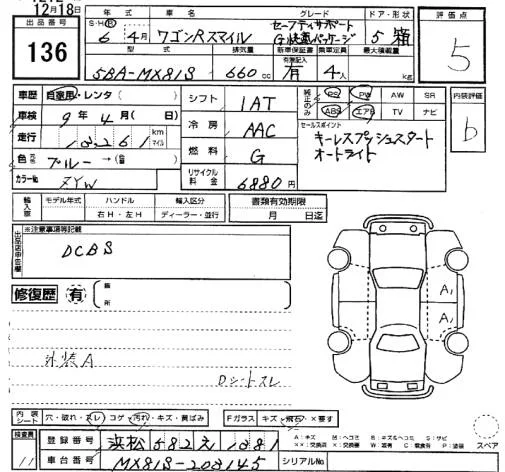 12月18日
出品番号 年式 車名 グレード ドア・形状 評価点
136
S・H(R) 6年4月 ワゴンRスマイル セーフティサポート G快適パッケージ 5 箱
5
型式 排気量 新車保証書 乗車定員 最大積載量
5BA-MX81S 660cc 記載有り 有 4人 kg
車歴 自家用・レンタ( ) シフト 1AT 純正のみ PS PW AW SR 内装評価
ABS エアB TV ナビ
b
車検 9年4月(日) 冷房 AAC セールスポイント
走行 18261 km マイル キーレスプッシュスタート
オートライト
色 ブルー→(色替) 燃料 G
カラーNo ZYW リサイクル料金 6880円
輸入車 モデル年式 ハンドル 輸入区分 書類有効期限
右H・左H ディーラー・並行 月 日迄
出品店申告欄 ※注意事項等記載
DCBS
修復歴 有 箇所
A1
A1
外装A
Dシートスレ
内装シート 穴・破れ・スレ コゲ・汚れ・キズ・黄ばみ Fガラス キズ・飛石・×要す
検査員 11 登録番号 浜松582え1081
車台番号 MX81S-203145 シリアルNo
A:キズ U:ヘコミ B:キズ&ヘコミ S:サビ
スペア